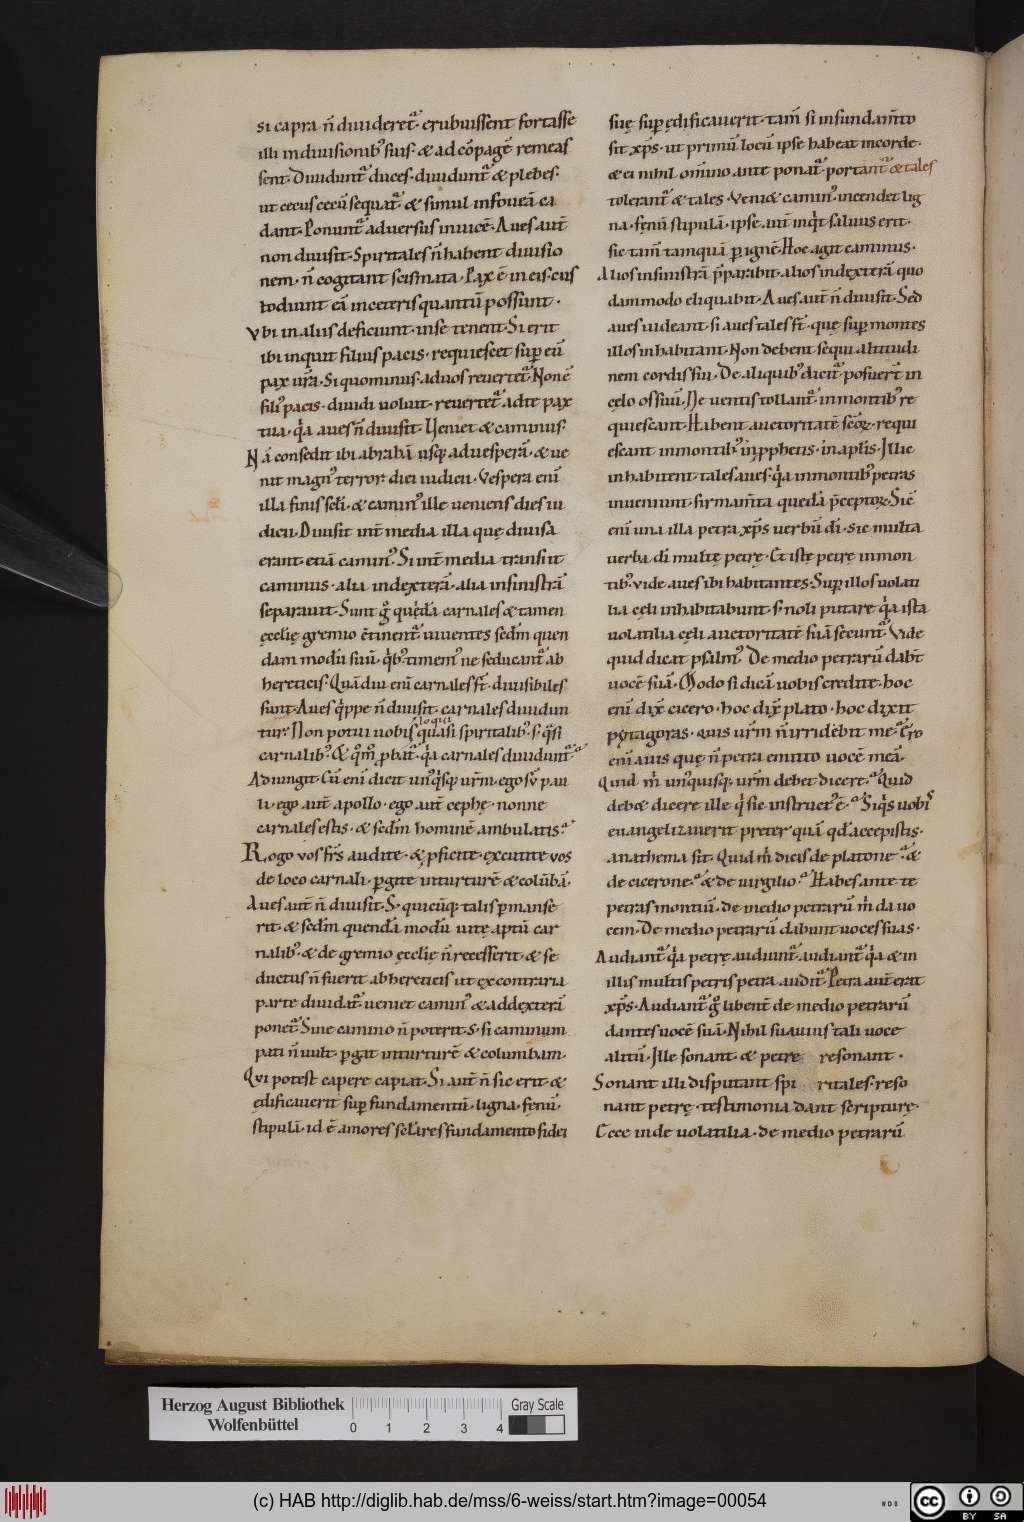 si capra n̄ diuideret᷑. erubuissent fortasse
illi in diuisionib; suis. & ad cōpagē remeas
sent. Diuidunt᷑ duces. diuidunt᷑ & plebes.
ut cecus cecū sequat᷑. & simul in foueā ca
dant. Ponunt᷑ aduersus inuicē. Aues aut̄
non diuisit. Spiritales n̄ habent diuisio
nem. n̄ cogitant scismata. Pax ē in eis. cus
todiunt eā in ceteris quantū possunt.
Vbi in aliis deficiunt. in se tenent. Si erit
ibi inquit filius pacis. requiescet sup̄ eū
pax ur̄a. Si quominus. ad uos reuertet᷑. Non ē
fili᷒ pacis. diuidi uoluit. reuertet᷑ ad te pax
tua. q̓a aues n̄ diuisit. Ueniet & caminus.
Nā consedit ibi abrahā usq; ad uesperā. & ue
nit magn᷒ terror diei iudicii. Vespera eni̅
illa finis sc̄li. & camin᷒ ille ueniens dies iu
dicii. Diuisit int̄ media illa quę diuisa
erant etiā camin᷒. Si int̄ media transiit
caminus. alia in dexterā. alia in sinistrā
separauit. Sunt g̊ quędā carnales & tamen
ęcclię gremio c̄tinent᷑ uiuentes sc̄dm quen
dam modū suū. q̓b; timem᷒ ne seducant᷑ ab
hereticis. Quādiu eni̅ carnales st̄. diuisibiles
sunt. Aues q̓ppe n̄ diuisit. carnales diuidun
tur. Non potui uobis loqui quasi spiritalib;. s; q̓si
carnalib;. Et q̊m̊ p̱bat᷑. q̓a carnales diuidunt᷑.
Adiungit. Cū eni̅ dicit un᷒q̓sq; ur̄m. ego sū pau
li. ego aut̄ apollo. ego aut̄ cephę. nonne
carnales estis. & sc̄dm hominē ambulatis.
Rogo vos fr̄s audite. & p̱ficite. excutite vos
de loco carnali. p̱gite in turturē & colūbā.
Aues aut̄ n̄ diuisit. S; quicūq; talis p̱manse
rit. & sc̄dm quendā modū uitę aptū car
nalib;. & de gremio ęcclię n̄ recesserit. & se
ductus n̄ fuerit ab hereticis ut ex contraria
parte diuidat᷑. ueniet camin᷒ & ad dexterā
ponet᷑. Sine camino n̄ poterit. S; si caminum
pati n̄ uult. p̱gat in turturē & columbam.
Qui potest capere capiat. Si aut̄ n̄ sic erit &
ędificauerit sup̄ fundamentū. ligna. fęnū.
stipulā. id ē amores sc̄lares fundamento fidei
suę sup̄ ędificauerit. tam̄ si in fundam̄to
sit xp̄s. ut primū locū ipse habeat in corde.
& ei nihil om̄ino ante ponat᷑. portant᷑ & tales
tolerant᷑ & tales. Veniet camin᷒. incendet lig
na. fęnū stipulā. ipse aut̄ inq̓t saluus erit.
sic tam̄ tamquā p̱ ignē. Hoc agit caminus.
Alios in sinistrā p̄parabit. alios in dexterā quo
dammodo eliquabit. Aues aut̄ n̄ diuisit. Sed
aues uideant. si aues tales st̄. que sup̄ montes
illos inhabitant. Non debent sequi altitudi
nem cordis sui. De aliquib; dicit᷑. posuer̄t in
cęlo os suū. Ne uentis tollant᷑. in montib; re
quiescant. Habent auctoritatē sc̄oꝝ. requi
escant in montib;. in p̱phetis. in ap̄lis. Illic
inhabitent. tales aues. q̓a in montib; petras
inueniunt. firmam̄ta quedā p̄ceptoꝝ. Sic̄
eni̅ una illa petra xp̄s uerbū dī. sic multa
uerba dī multę petrę. Et istę petrę in mon
tib;. vide aues ibi habitantes. Sup̄ illos uolati
lia cęli inhabitabunt. s; noli putare q̓a ista
uolatilia cęli auctoritatē suā secunt᷑. Vide
quid dicat psalm᷒. De medio petrarū dab̄t
uocē suā. Modo si dicā uobis credite. hoc
eni̅ dix̄ cicero. hoc dix̄ plato. hoc dixit
pytagoras. quis ur̄m n̄ irridebit me. Ero
eni̅ auis quę n̄ petra emitto uocē meā.
Quid m̓ un᷒quisq; ur̄m debet dicere. Quid
debet dicere ille q̓ sic instruct᷒ ē. Siq̓s uobis
euangelizauerit preter quā qd̓ accepistis.
anathema sit. Quid m̓ dicis de platone. &
de cicerone. & de uirgilio. Habes ante te
petras montiū. de medio petrarū m̓ da uo
cem. De medio petrarū dabunt uoces suas.
Audiant᷑ q̓a petrę audiunt᷑. audiant᷑ q̓a & in
illis multis petris petra audit᷑. Petra aut̄ erat
xp̄s. Audiant᷑ g̊ libent̄ de medio petrarū
dantes uocē suā. Nihil suauius tali uoce
alitū. Ille sonant. & petre resonant.
Sonant illi disputant spi ritales. reso
nant petrę. testimonia dant scripturę.
Ecce inde uolatilia. de medio petrarū
Herzog August Bibliothek
Wolfenbüttel
0 1 2 3 4
Gray Scale
(c) HAB http://diglib.hab.de/mss/6-weiss/start.htm?image=00054
WDB
cc BY SA